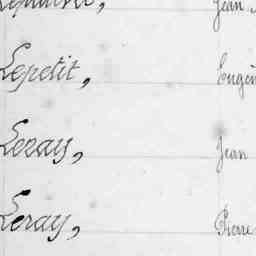 Jean
Lepetit, Eugèn
Leray, Jean
Leray, Pierre